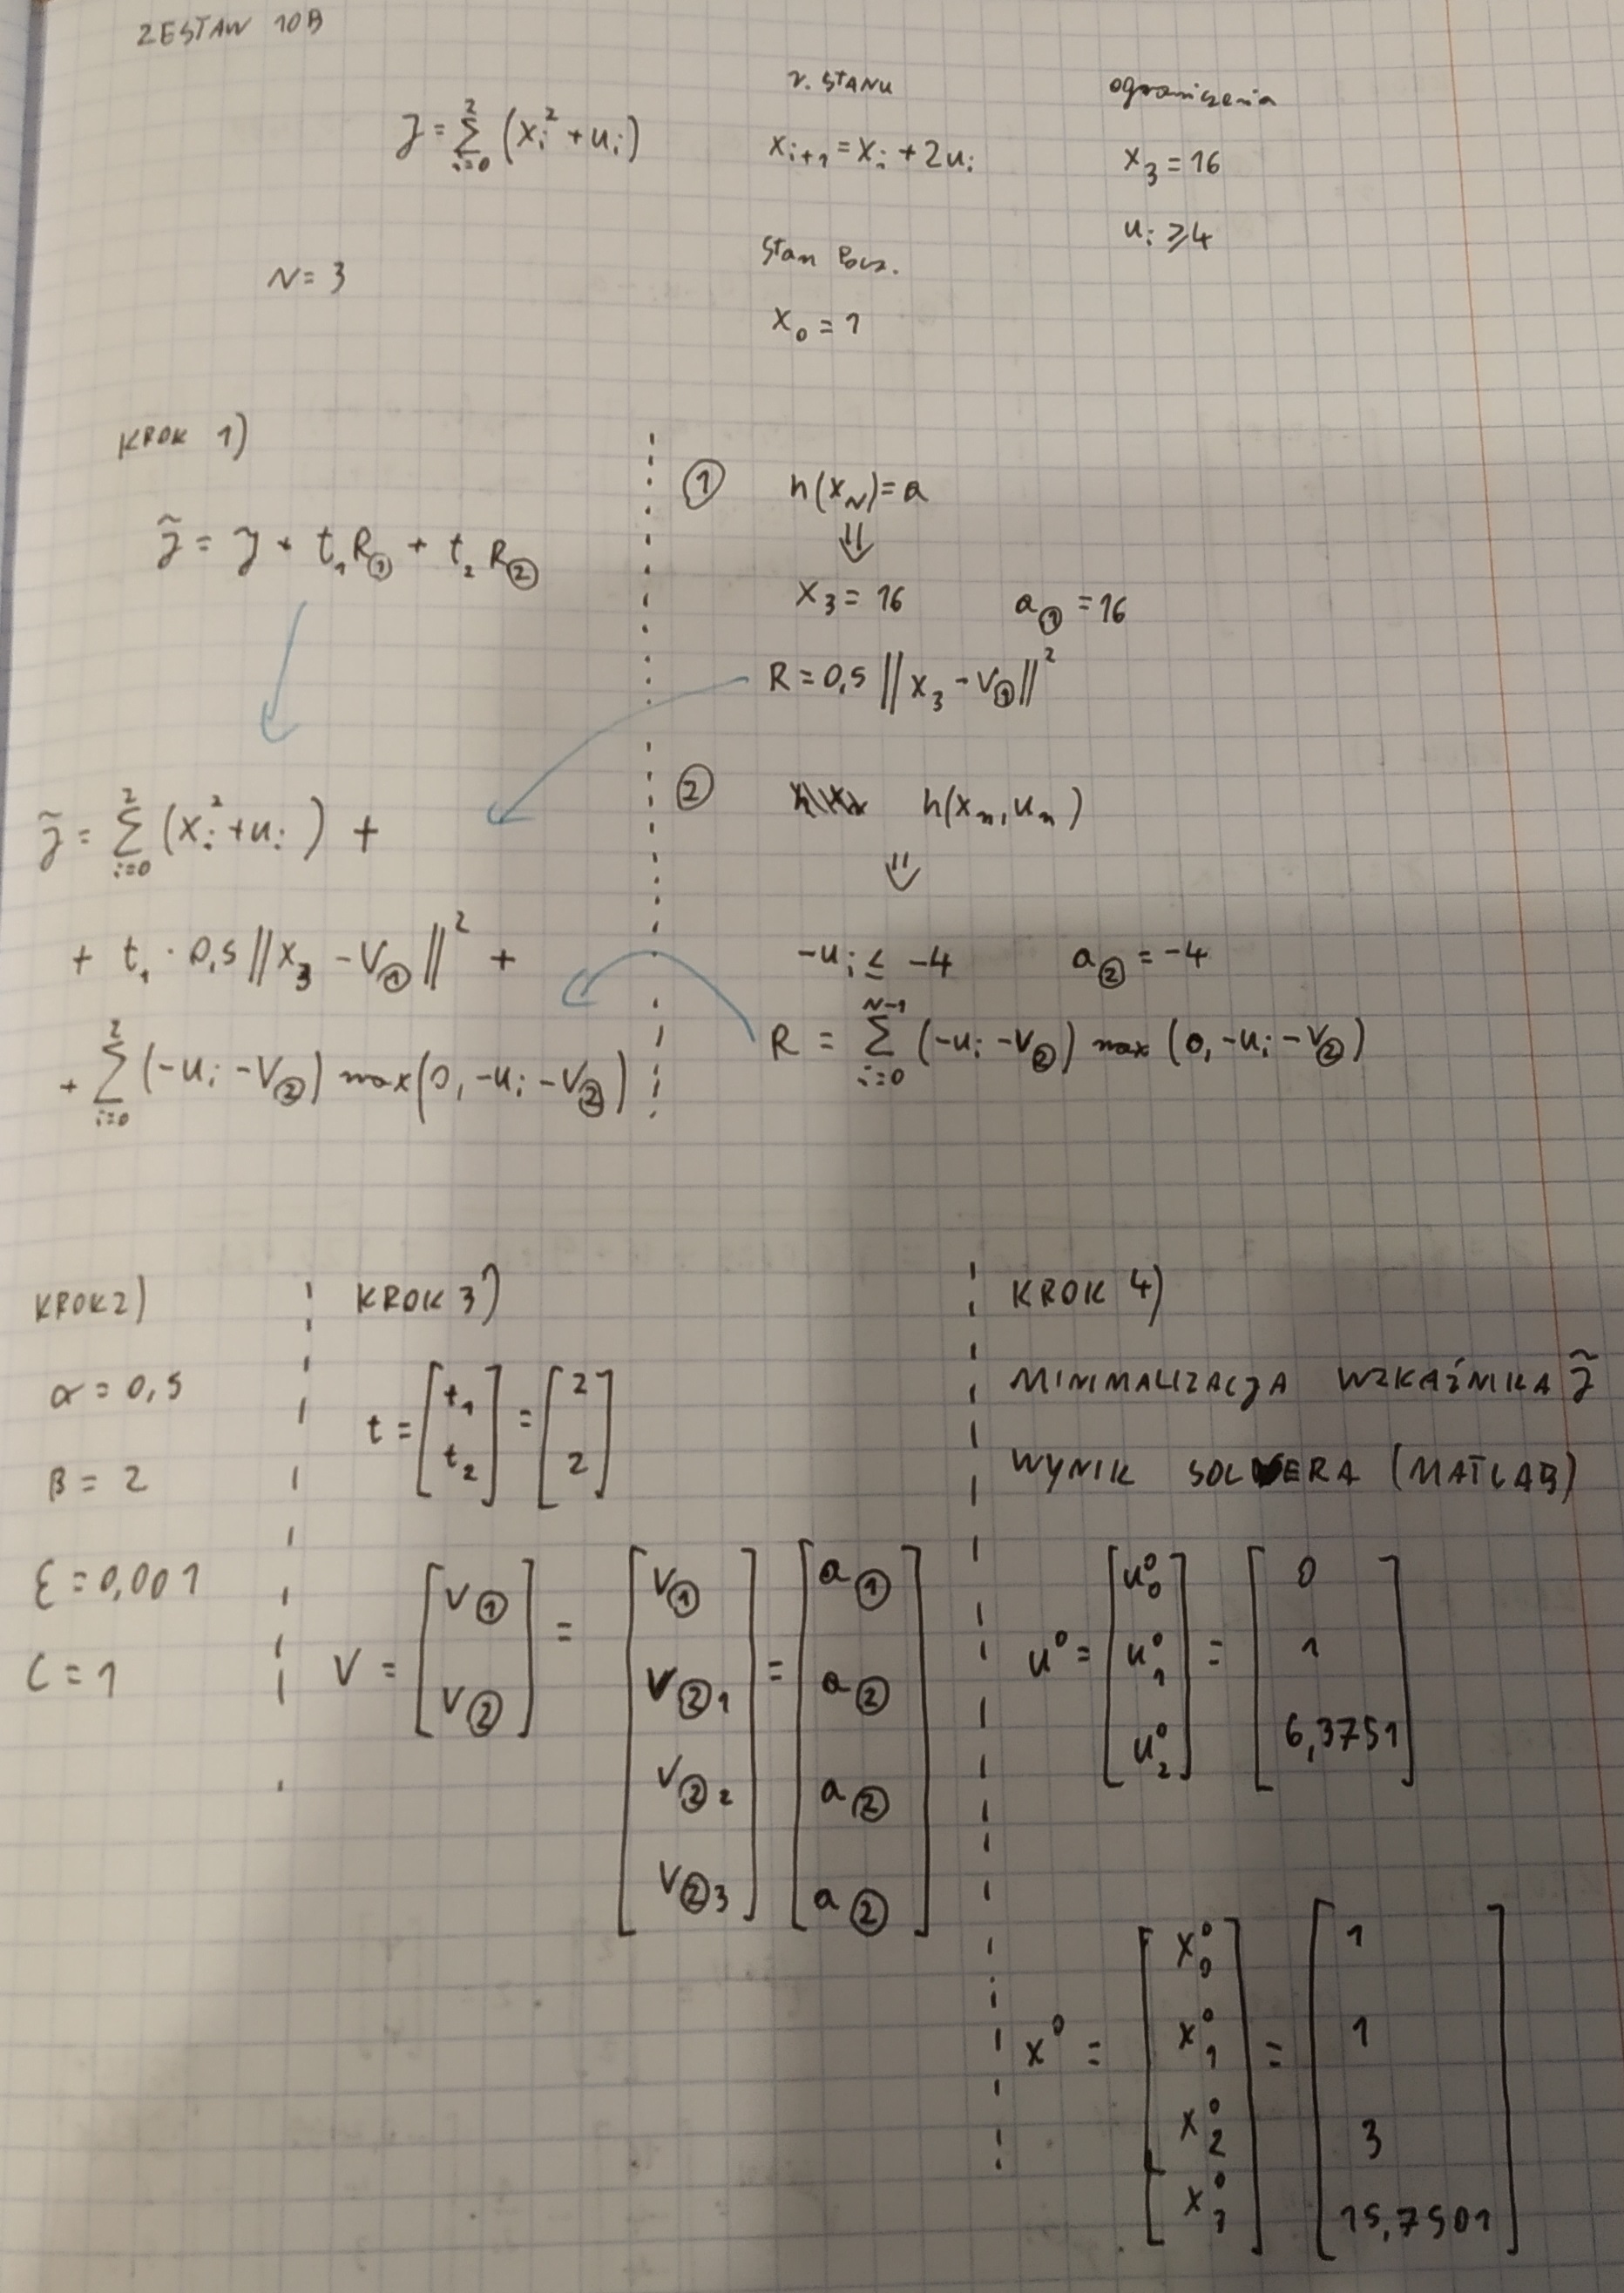 ZESTAW 10B
J = ∑_{i=0}^{2} (x_i² + u_i)
r. STANU
x_{i+1} = x_i + 2u_i
ograniczenia
x_3 = 16
u_i ⩾ 4
N = 3
Stan Pocz.
x_0 = 1
KROK 1)
J̃ = J + t_1 R_① + t_2 R_②
J̃ = ∑_{i=0}^{2} (x_i² + u_i) +
+ t_1 · 0,5 ‖x_3 - V_①‖² +
+ ∑_{i=0}^{2} (-u_i - V_②) max(0, -u_i - V_②)
① h(x_N) = a
⇓
x_3 = 16 a_① = 16
R = 0,5 ‖x_3 - V_①‖²
② h(x_n, u_n)
⇓
-u_i ≤ -4 a_② = -4
R = ∑_{i=0}^{N-1} (-u_i - V_②) max (0, -u_i - V_②)
KROK 2)
α = 0,5
β = 2
ε = 0,001
C = 1
KROK 3)
t = [t_1 t_2] = [2 2]
V = [V_① V_②] = [V_① V_②1 V_②2 V_②3] = [a_① a_② a_② a_②]
KROK 4)
MINIMALIZACJA WZKAŹNIKA J̃
WYNIK SOLVERA (MATLAB)
u⁰ = [u_0⁰ u_1⁰ u_2⁰] = [0 1 6,3751]
x⁰ = [x_0⁰ x_1⁰ x_2⁰ x_3⁰] = [1 1 3 15,7501]